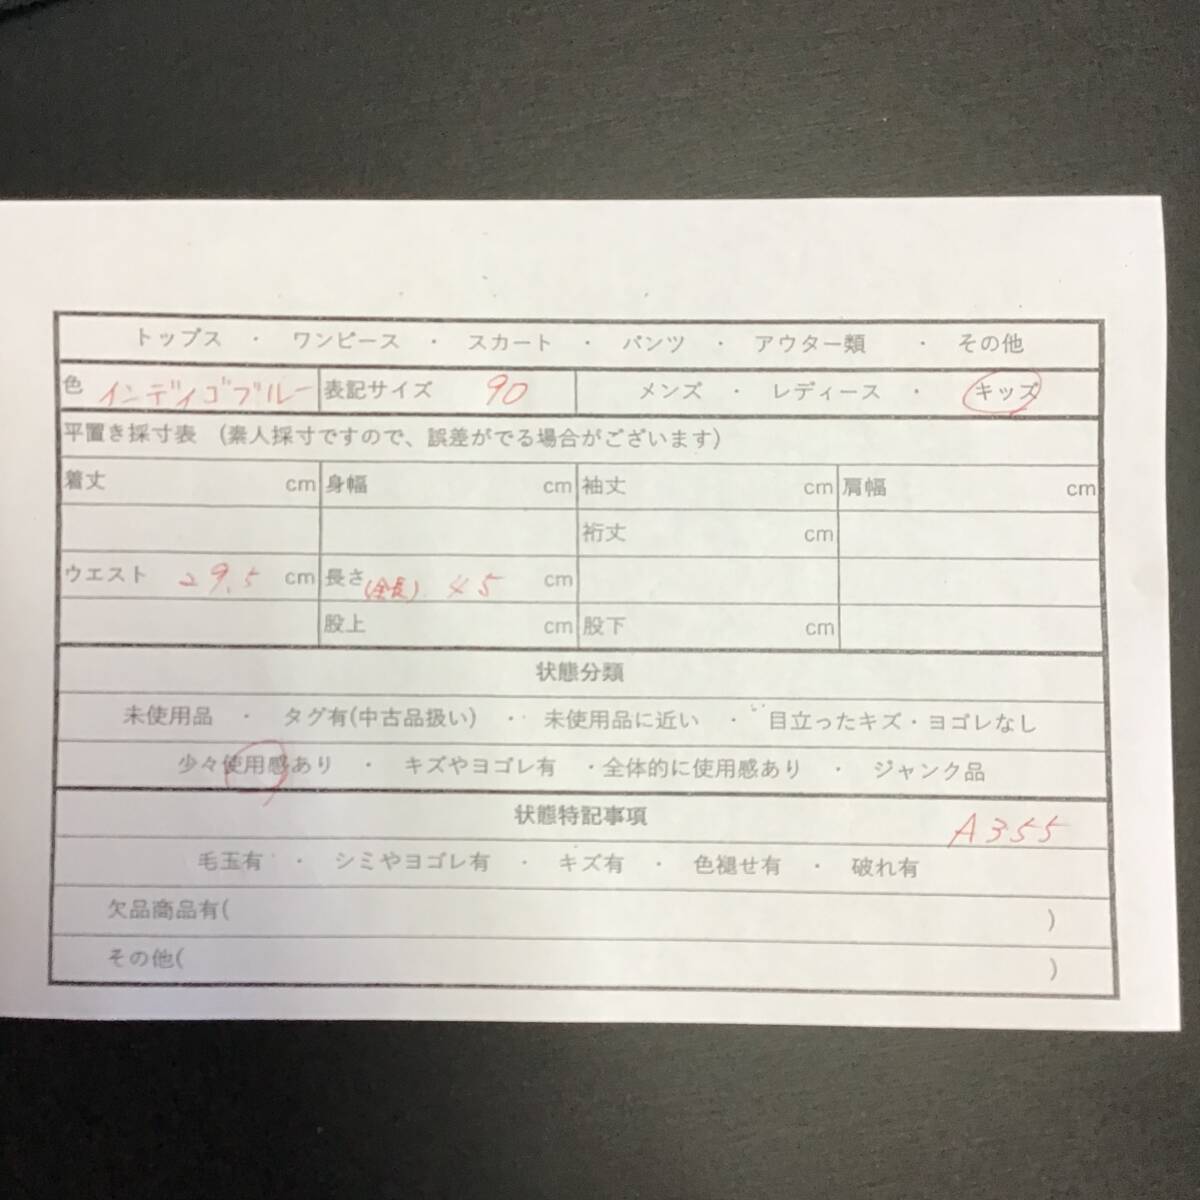 トップス ・ ワンピース ・ スカート ・ パンツ ・ アウター類 ・ その他
色 インディゴブルー 表記サイズ 90 メンズ ・ レディース ・ キッズ
平置き採寸表 (素人採寸ですので、誤差がでる場合がございます)
着丈 cm 身幅 cm 袖丈 cm 肩幅 cm
裄丈 cm
ウエスト 29.5 cm 長さ(全長) 45 cm
股上 cm 股下 cm
状態分類
未使用品 ・ タグ有(中古品扱い) ・ 未使用品に近い ・ 目立ったキズ・ヨゴレなし
少々使用感あり ・ キズやヨゴレ有 ・全体的に使用感あり ・ ジャンク品
状態特記事項 A355
毛玉有 ・ シミやヨゴレ有 ・ キズ有 ・ 色褪せ有 ・ 破れ有
欠品商品有( )
その他( )